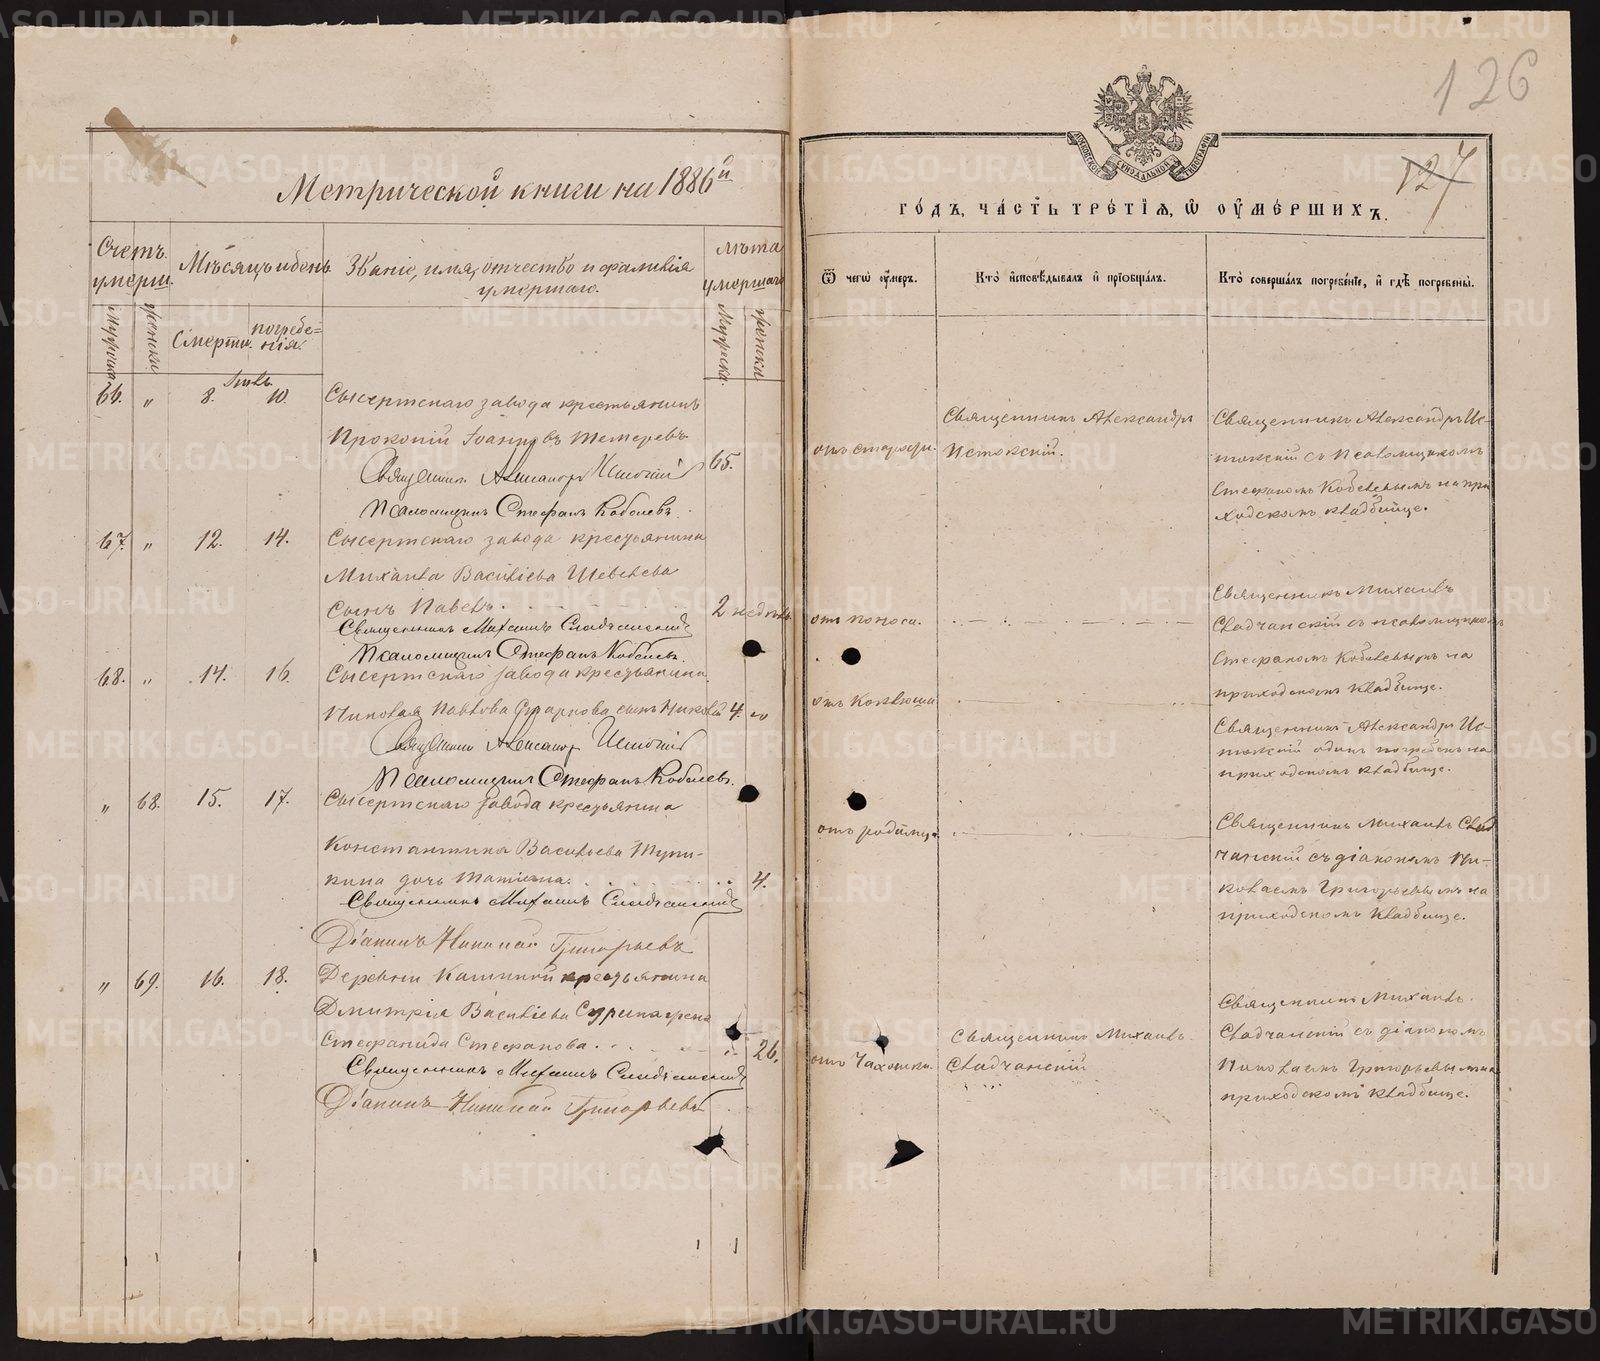 126
127
Метрической книги на 1886й
годъ, часть третія, ѡ оумершихъ.
Счетъ умерш.
Мѣсяцъ и день
Званіе, имя, отчество и фамилія
умершаго.
Лѣта
умершаго
Мужеска
женски
Смерти.
погребе-
нія.
Мужеска.
женски
Ѿ чегѡ оумеръ.
Кто исповѣдывалъ и пріобщалъ.
Кто совершалъ погребеніе, и гдѣ погребены.
66. „ 8. 10.
Сысертскаго завода крестьянинъ
Прокопій Іоанновъ Тетеревъ
65.
Священникъ Александръ Истокскій
Псаломщикъ Стефанъ Кобелевъ.
отъ старости.
Священникъ Александръ
Истокскій.
Священникъ Александръ Ис-
токскій съ псаломщикомъ
Стефаномъ Кобелевымъ на при
ходскомъ кладбищѣ.
67. „ 12. 14.
Сысертскаго завода крестьянина
Михаила Василіева Шевелева
сынъ Павелъ.
2 недѣль
Священникъ Михаилъ
Псаломщикъ Стефанъ Кобелевъ.
отъ поноса.
Священникъ Михаилъ
съ псаломщикомъ
Стефаномъ Кобелевымъ на
приходскомъ кладбищѣ.
68. „ 14. 16.
Сысертскаго завода крестьянина
Николая Павлова сынъ Николай 4.
Священникъ Александръ Истокскій
Псаломщикъ Стефанъ Кобелевъ.
отъ коклюша
Священникъ Александръ Ис-
токскій одинъ погребенъ на
приходскомъ кладбищѣ.
„ 68. 15. 17.
Сысертскаго завода крестьянина
Константина Василіева
дочь Татіана.
4.
Священникъ Михаилъ
Діаконъ Николай Григорьевъ
отъ родимца
Священникъ Михаилъ
съ діакономъ Ни-
колаемъ Григорьевымъ на
приходскомъ кладбищѣ.
„ 69. 16. 18.
Деревни крестьянина
Дмитрія Василіева жена
Стефанида Стефанова.
26.
Священникъ Михаилъ
Діаконъ Николай Григорьевъ
отъ чахотки.
Священникъ Михаилъ
Священникъ Михаилъ
съ діакономъ
Николаемъ Григорьевымъ на
приходскомъ кладбищѣ.
METRIKI.GASO-URAL.RU